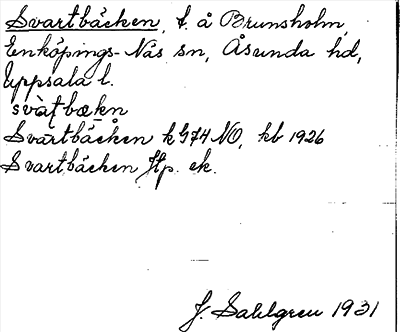 Svartbäcken, t. å Brunsholm,
Enköpings-Näs sn, Åsunda hd,
Uppsala l.
svàṭbækn
Svartbäcken k 974 NO, kb 1926
Svartbäcken Hp. ek.
J. Sahlgren 1931